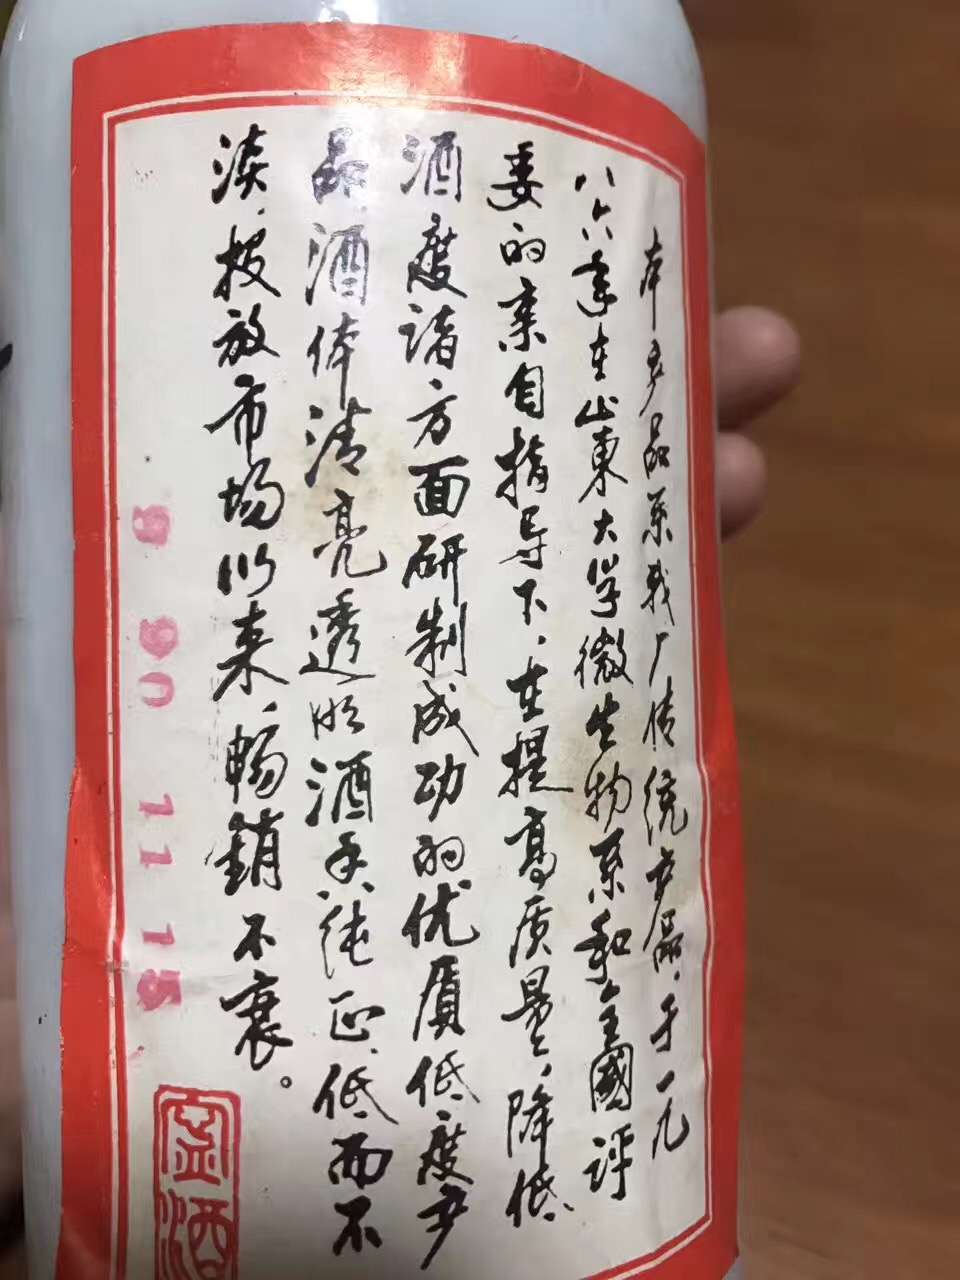 本产品系我厂传统产品，于一九
八六年在山东大学微生物系和全國评
委的亲自指导下，在提高质量，降低
酒度诸方面研制成功的优质低度产
品，酒体清亮透明酒香纯正，低而不
淡，投放市场以来，畅銷不衰。
90 11 15
酒